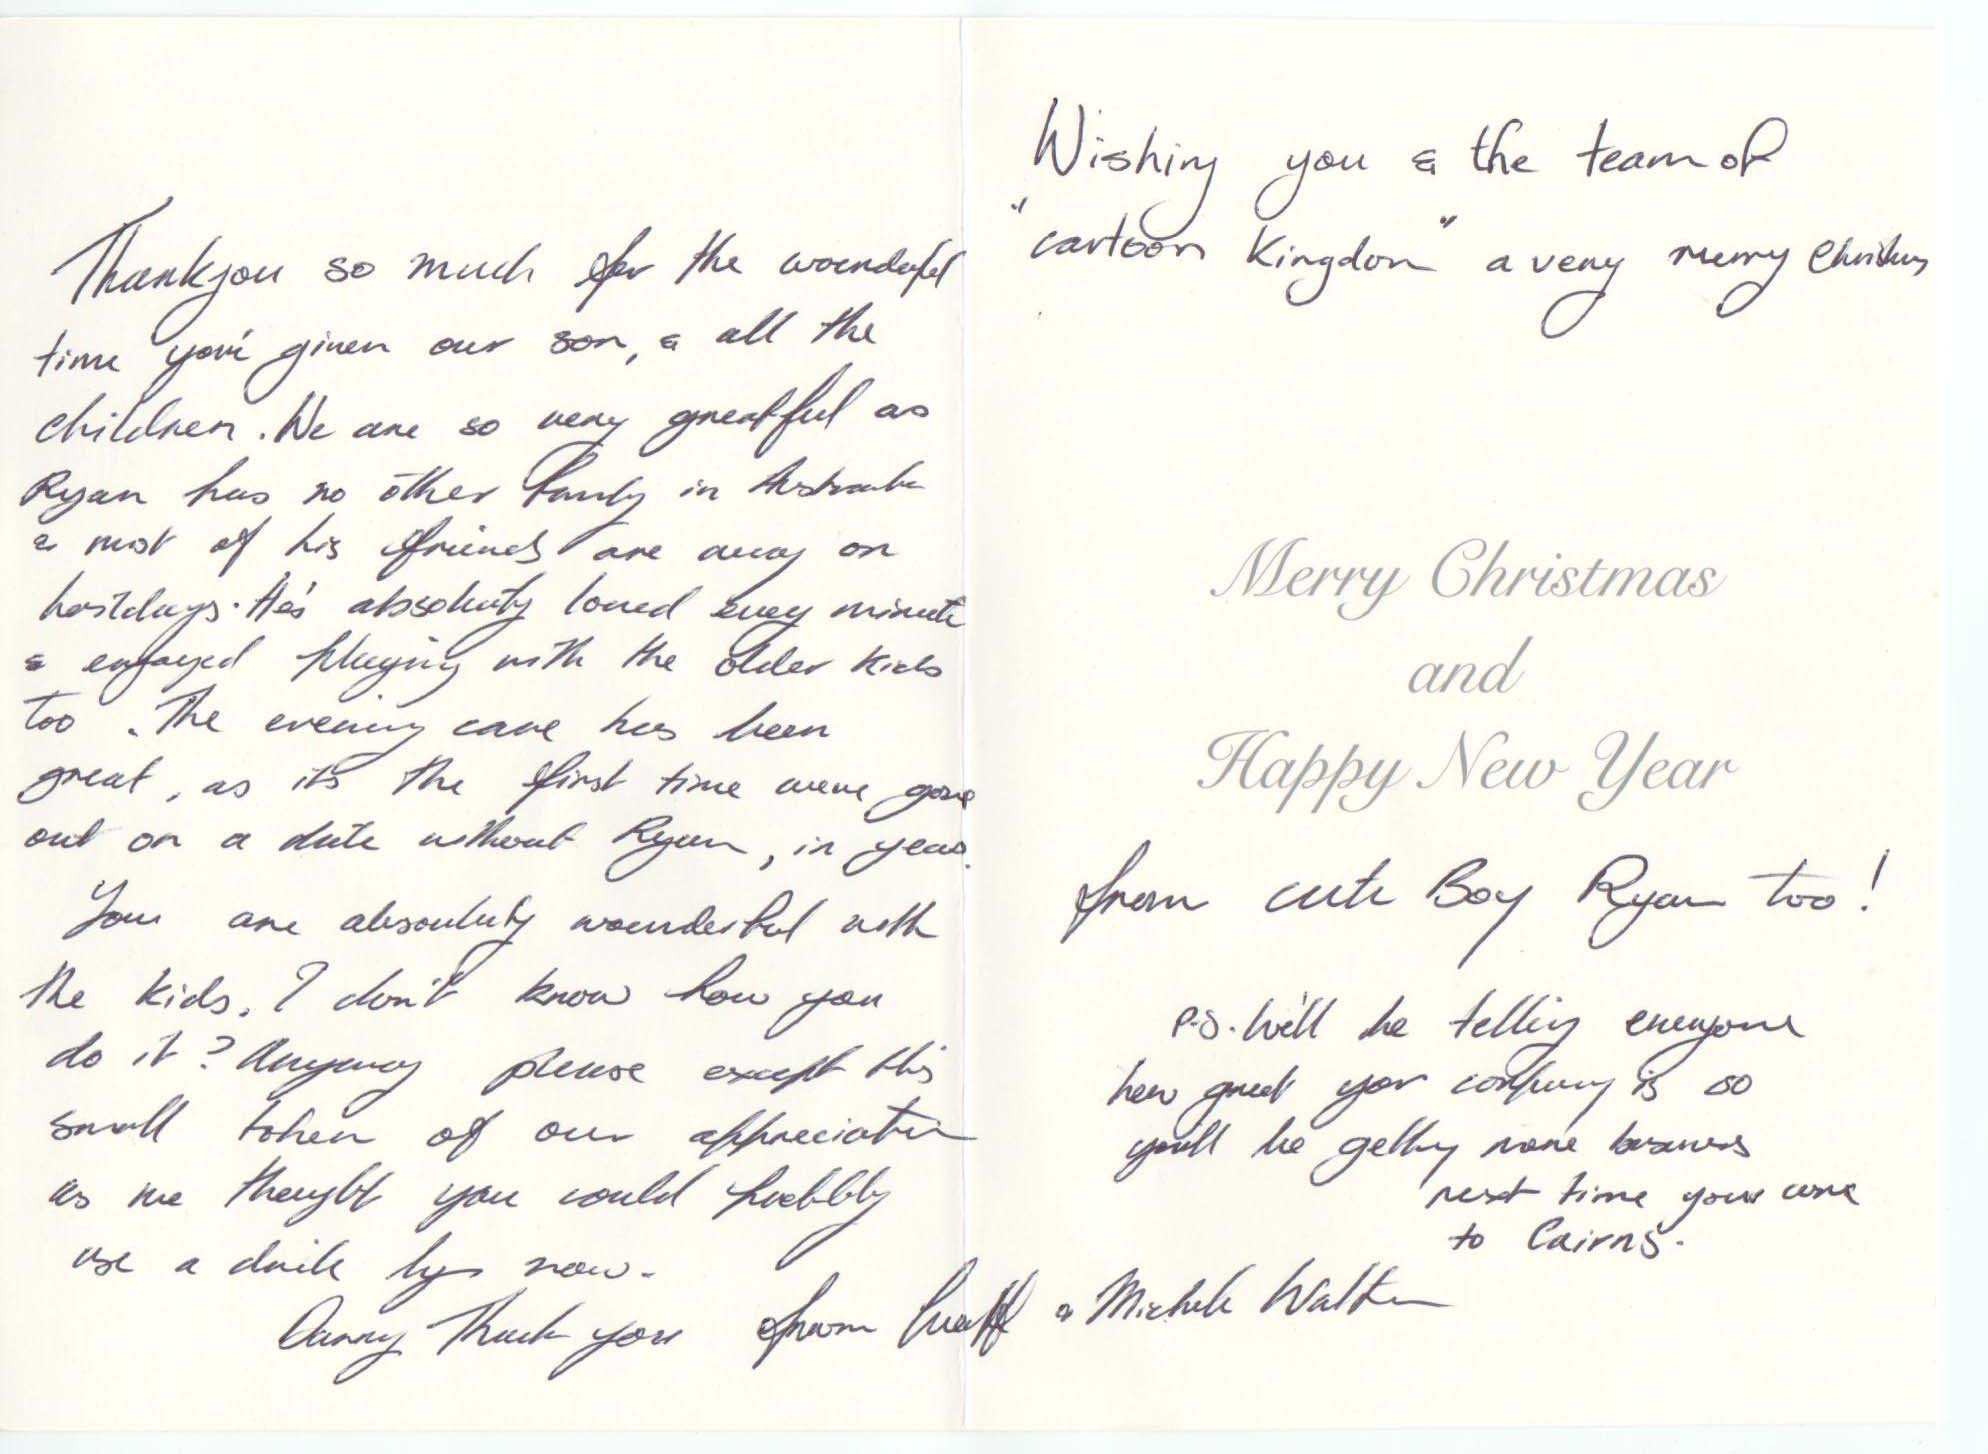 Thankyou so much for the wounderful
time you've given our son, & all the
children. We are so very greatful as
Ryan has no other family in Australia
& most of his friends are away on
holidays. He's absolutly loved every minute
& enjoyed playing with the older kids
too. The evening care has been
great, as its the first time weve gone
out on a date without Ryan, in years.
You are absolutely wounderful with
the kids. I don't know how you
do it? Anyway please except this
small token of our appreciation
as we thought you could probably
use a drink by now.
Danny Thank you from & Michele
Wishing you & the team of
"cartoon Kingdom" a very merry Christmas
Merry Christmas
and
Happy New Year
from cute Boy Ryan too!
P.S. We'll be telling everyone
how great your company is so
you'll be getting more business
next time your come
to Cairns.